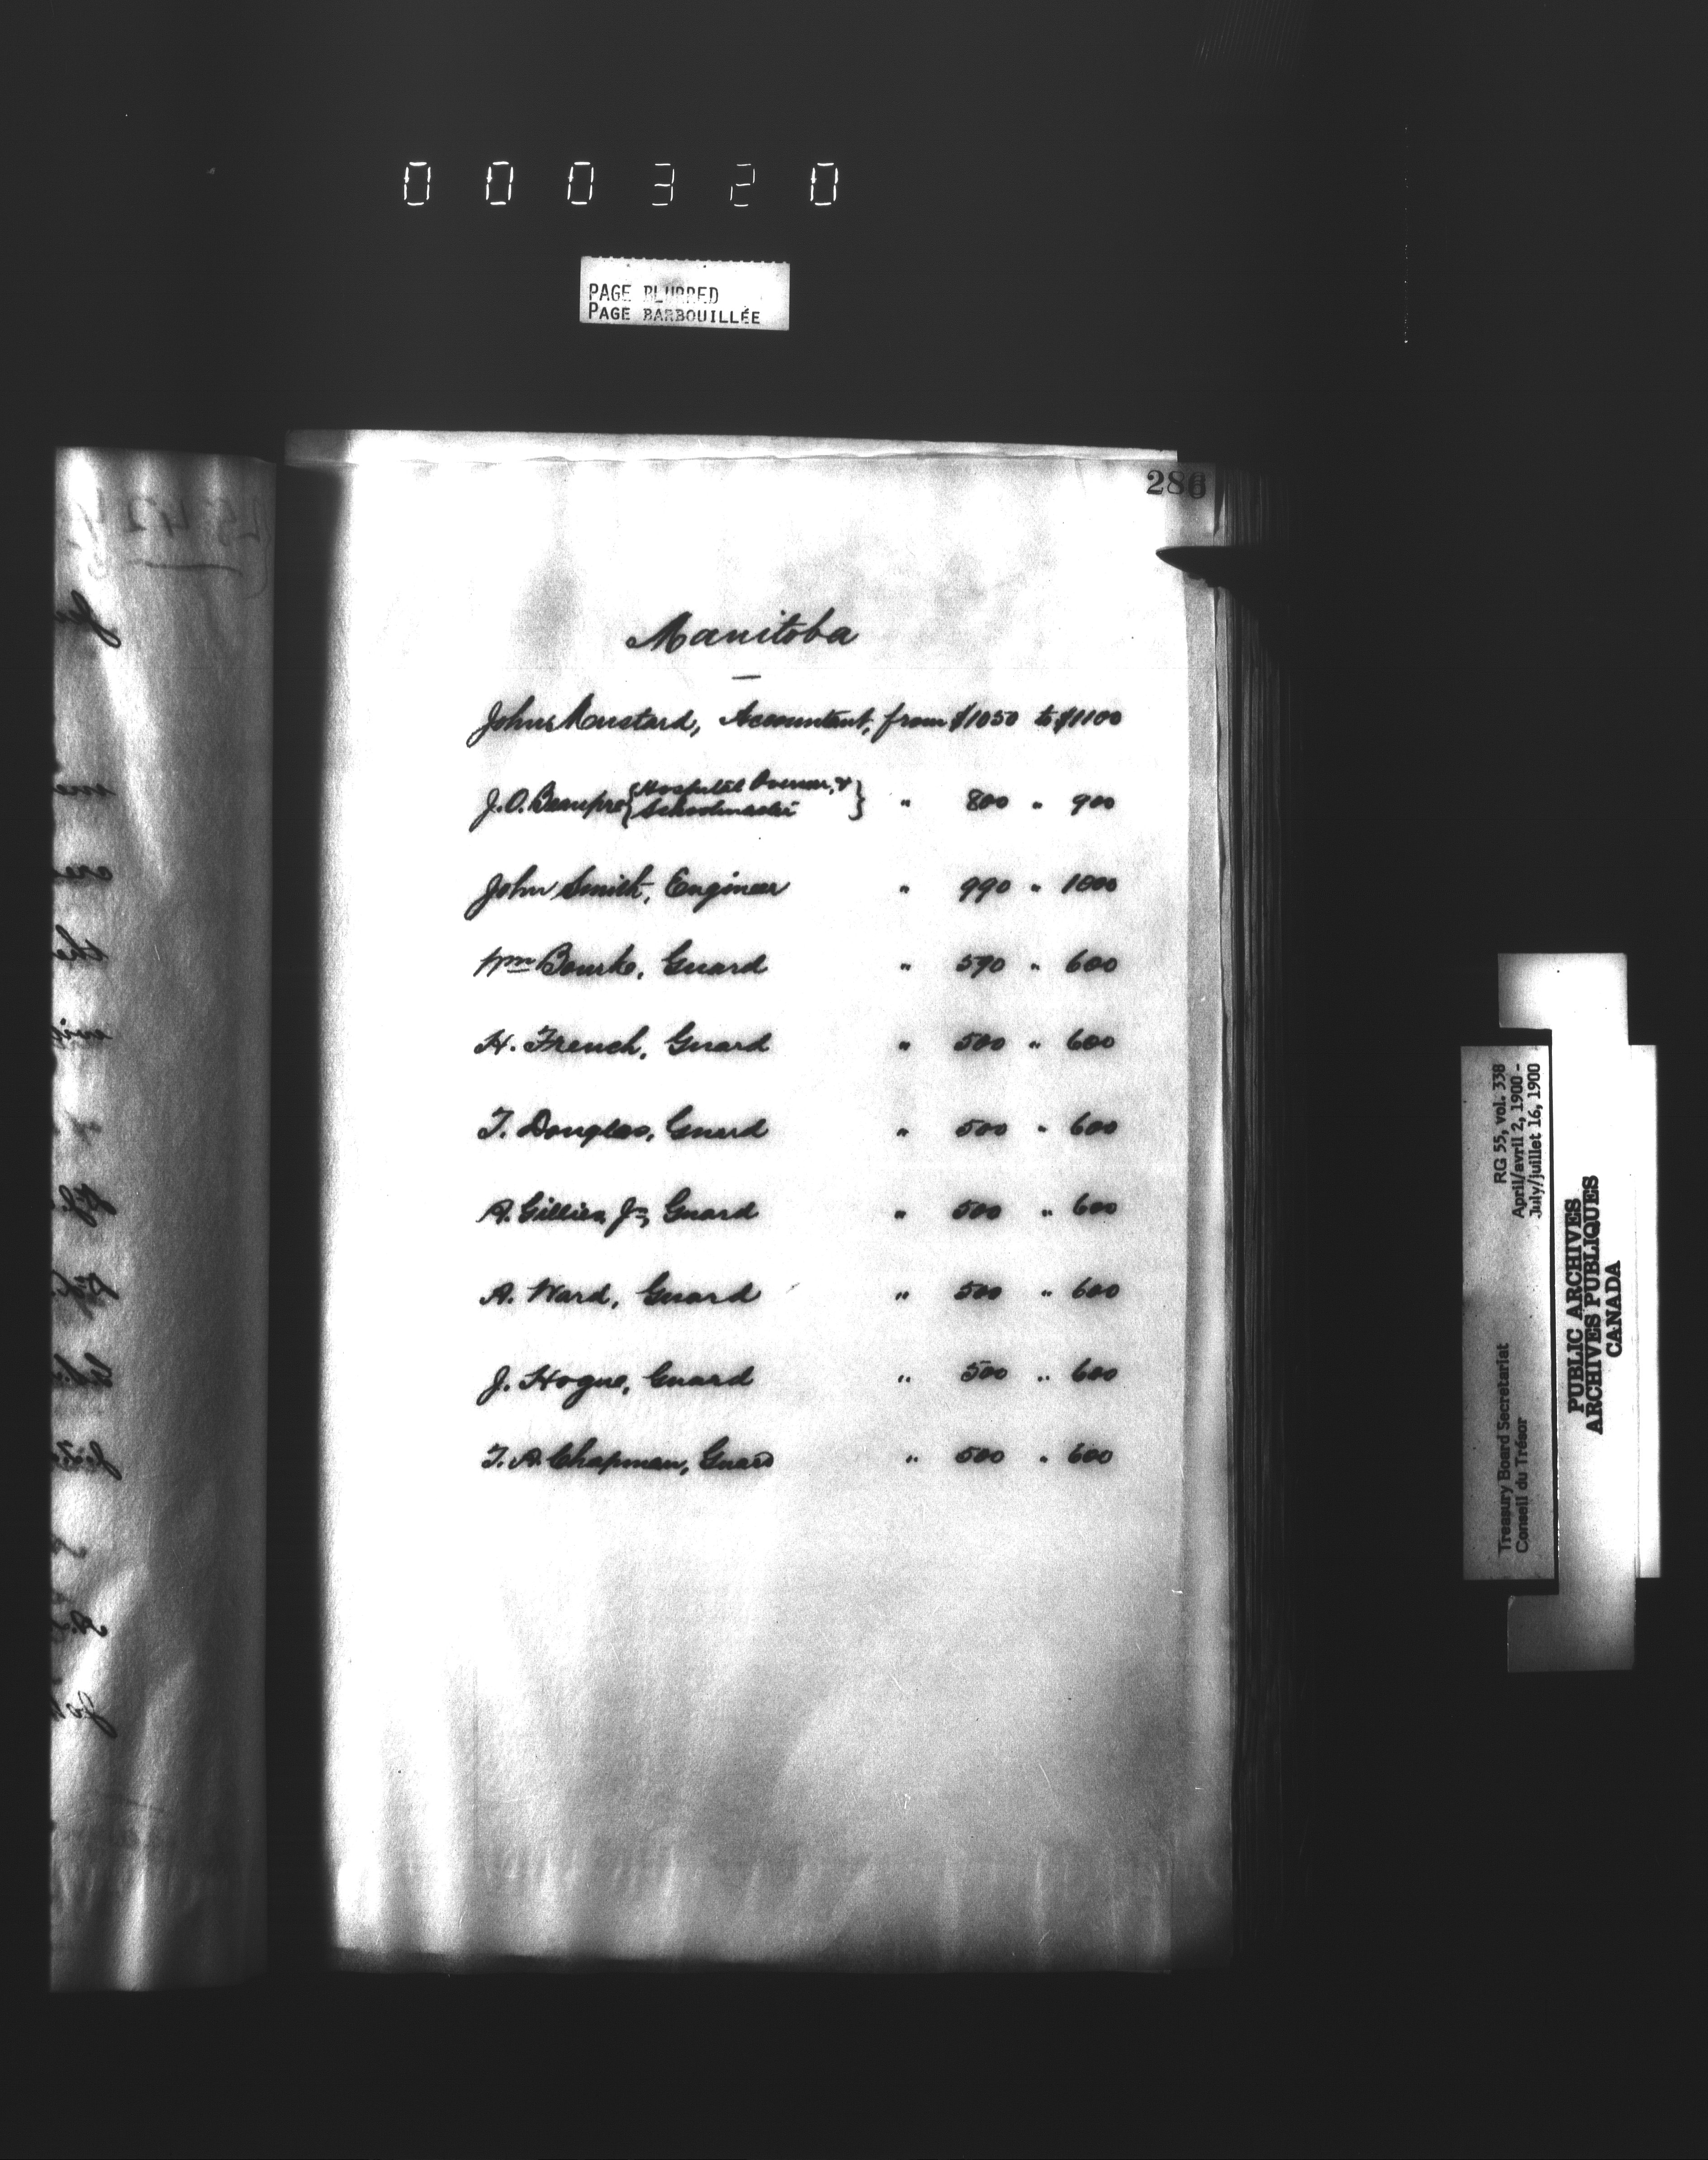 000320
PAGE BLURRED
PAGE BARBOUILLÉE
286
Manitoba
John Mustard, Accountant, from $1050 to $1100
J.O. Beaupre {Hospital Overseer, & Schoolmaster} " 800 " 900
John Smith, Engineer " 990 " 1000
Wm Bourke, Guard " 590 " 600
H. French, Guard " 500 " 600
T. Douglas, Guard " 500 " 600
A. Gillies, Jr, Guard " 500 " 600
A. Ward, Guard " 500 " 600
J. Hogue, Guard " 500 " 600
T. A. Chapman, Guard " 500 " 600
RG 55, vol. 338
April/avril 2, 1900 -
July/juillet 16, 1900
Treasury Board Secretariat
Conseil du Trésor
PUBLIC ARCHIVES
ARCHIVES PUBLIQUES
CANADA